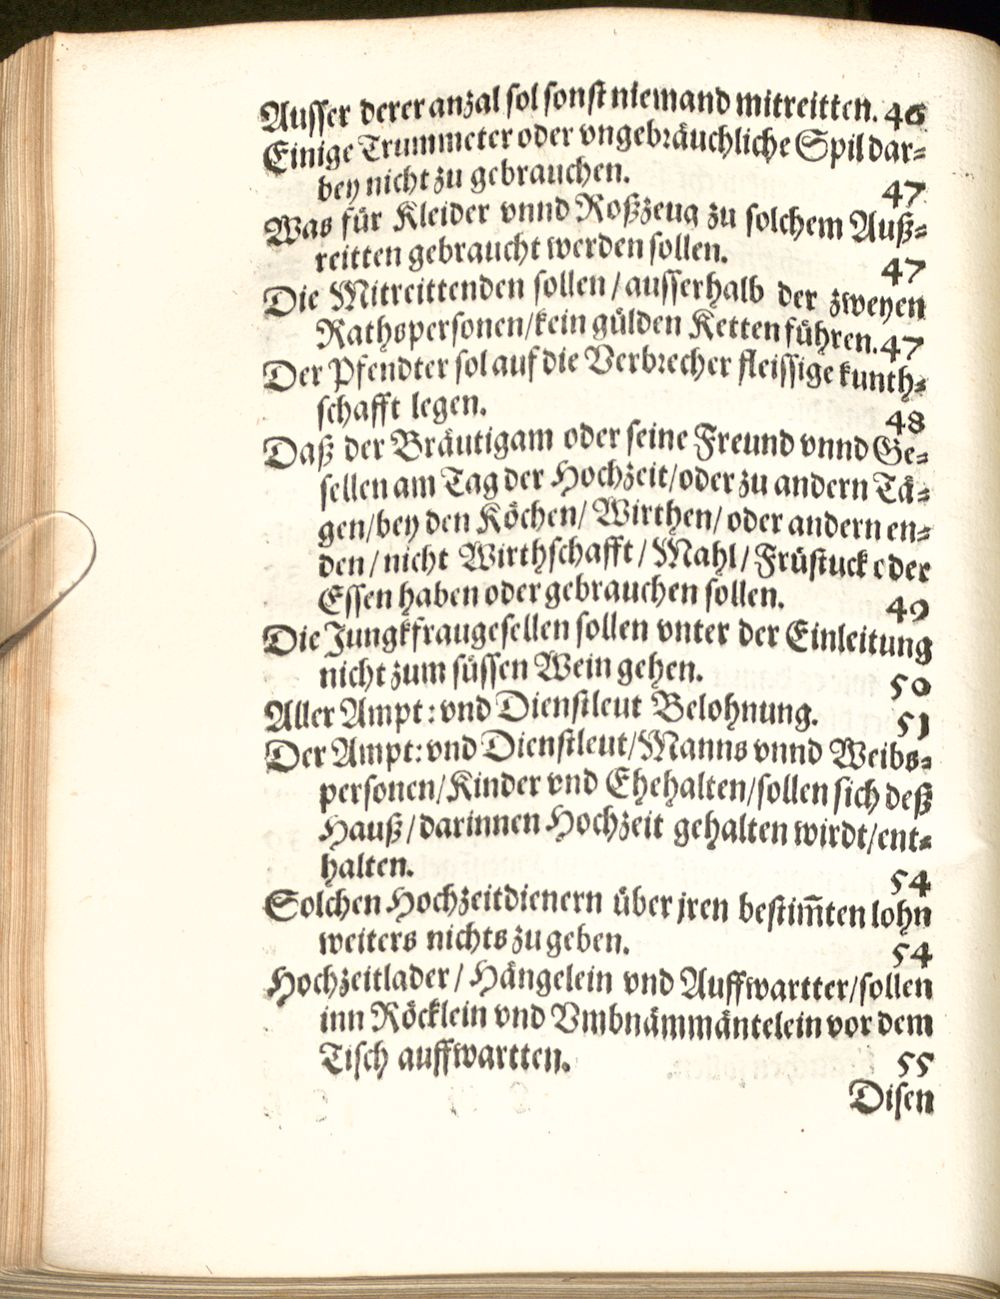 Ausser derer anzal sol sonst niemand mitreitten. 46
Einige Trummeter oder vngebräuchliche Spil dar-
bey nicht zu gebrauchen. 47
Was für Kleider vnnd Roßzeug zu solchem Auß-
reitten gebraucht werden sollen. 47
Die Mitreittenden sollen / ausserhalb der zweyen
Rathspersonen/kein gülden Ketten führen. 47
Der Pfendter sol auf die Verbrecher fleissige kunth-
schafft legen. 48
Daß der Bräutigam oder seine Freund vnnd Ge-
sellen am Tag der Hochzeit/oder zu andern Tä-
gen/bey den Köchen/ Wirthen/ oder andern en-
den / nicht Wirthschafft / Mahl / Früstuck oder
Essen haben oder gebrauchen sollen. 49
Die Jungkfraugesellen sollen vnter der Einleitung
nicht zum süssen Wein gehen. 50
Aller Ampt: vnd Dienstleut Belohnung. 51
Der Ampt: vnd Dienstleut/Manns vnnd Weibs-
personen/Kinder vnd Ehehalten/sollen sich deß
Hauß / darinnen Hochzeit gehalten wirdt/ent-
halten. 54
Solchen Hochzeitdienern über jren bestim̃ten lohn
weiters nichts zu geben. 54
Hochzeitlader / Hängelein vnd Auffwartter/sollen
inn Röcklein vnd Vmbnämmäntelein vor dem
Tisch auffwartten. 55
Disen